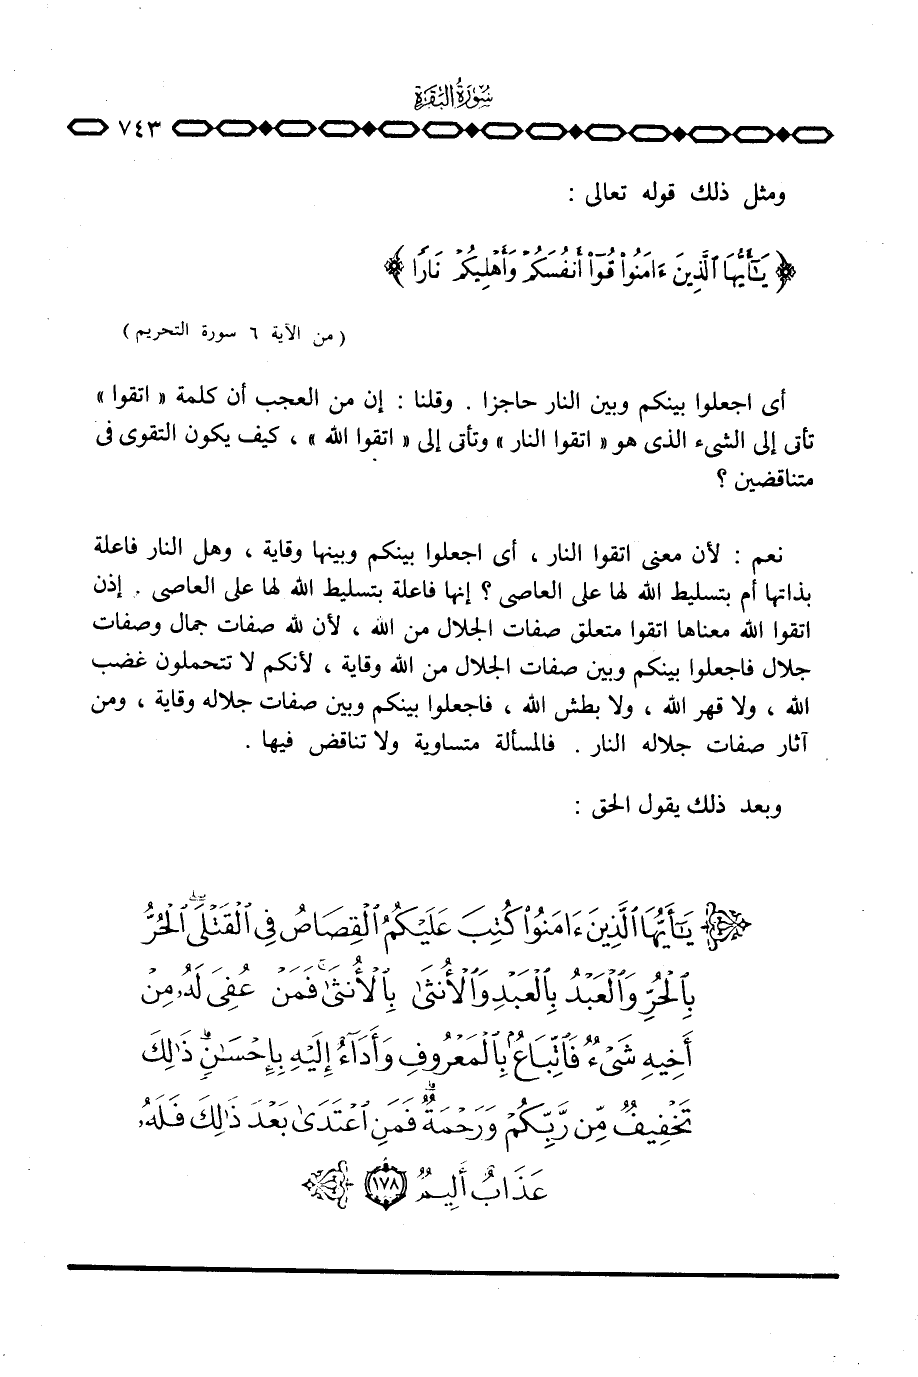 سُورَةُ البَقَرَةِ
٧٤٣
ومثل ذلك قوله تعالى :
﴿ يَٰٓأَيُّهَا ٱلَّذِينَ ءَامَنُوا۟ قُوٓا۟ أَنفُسَكُمْ وَأَهْلِيكُمْ نَارًا ﴾
( من الآية ٦ سورة التحريم )
أى اجعلوا بينكم وبين النار حاجزا . وقلنا : إن من العجب أن كلمة « اتقوا »
تأتى إلى الشىء الذى هو « اتقوا النار » وتأتى إلى « اتقوا الله » ، كيف يكون التقوى فى
متناقضين ؟
نعم : لأن معنى اتقوا النار ، أى اجعلوا بينكم وبينها وقاية ، وهل النار فاعلة
بذاتها أم بتسليط الله لها على العاصى ؟ إنها فاعلة بتسليط الله لها على العاصى . إذن
اتقوا الله معناها اتقوا متعلق صفات الجلال من الله ، لأن لله صفات جمال وصفات
جلال فاجعلوا بينكم وبين صفات الجلال من الله وقاية ، لأنكم لا تتحملون غضب
الله ، ولا قهر الله ، ولا بطش الله ، فاجعلوا بينكم وبين صفات جلاله وقاية ، ومن
آثار صفات جلاله النار . فالمسألة متساوية ولا تناقض فيها .
وبعد ذلك يقول الحق :
يَٰٓأَيُّهَا ٱلَّذِينَ ءَامَنُوا۟ كُتِبَ عَلَيْكُمُ ٱلْقِصَاصُ فِى ٱلْقَتْلَىۖ ٱلْحُرُّ
بِٱلْحُرِّ وَٱلْعَبْدُ بِٱلْعَبْدِ وَٱلْأُنثَىٰ بِٱلْأُنثَىٰۚ فَمَنْ عُفِىَ لَهُۥ مِنْ
أَخِيهِ شَىْءٌ فَٱتِّبَاعٌۢ بِٱلْمَعْرُوفِ وَأَدَآءٌ إِلَيْهِ بِإِحْسَٰنٍۗ ذَٰلِكَ
تَخْفِيفٌ مِّن رَّبِّكُمْ وَرَحْمَةٌۗ فَمَنِ ٱعْتَدَىٰ بَعْدَ ذَٰلِكَ فَلَهُۥ
عَذَابٌ أَلِيمٌ ١٧٨